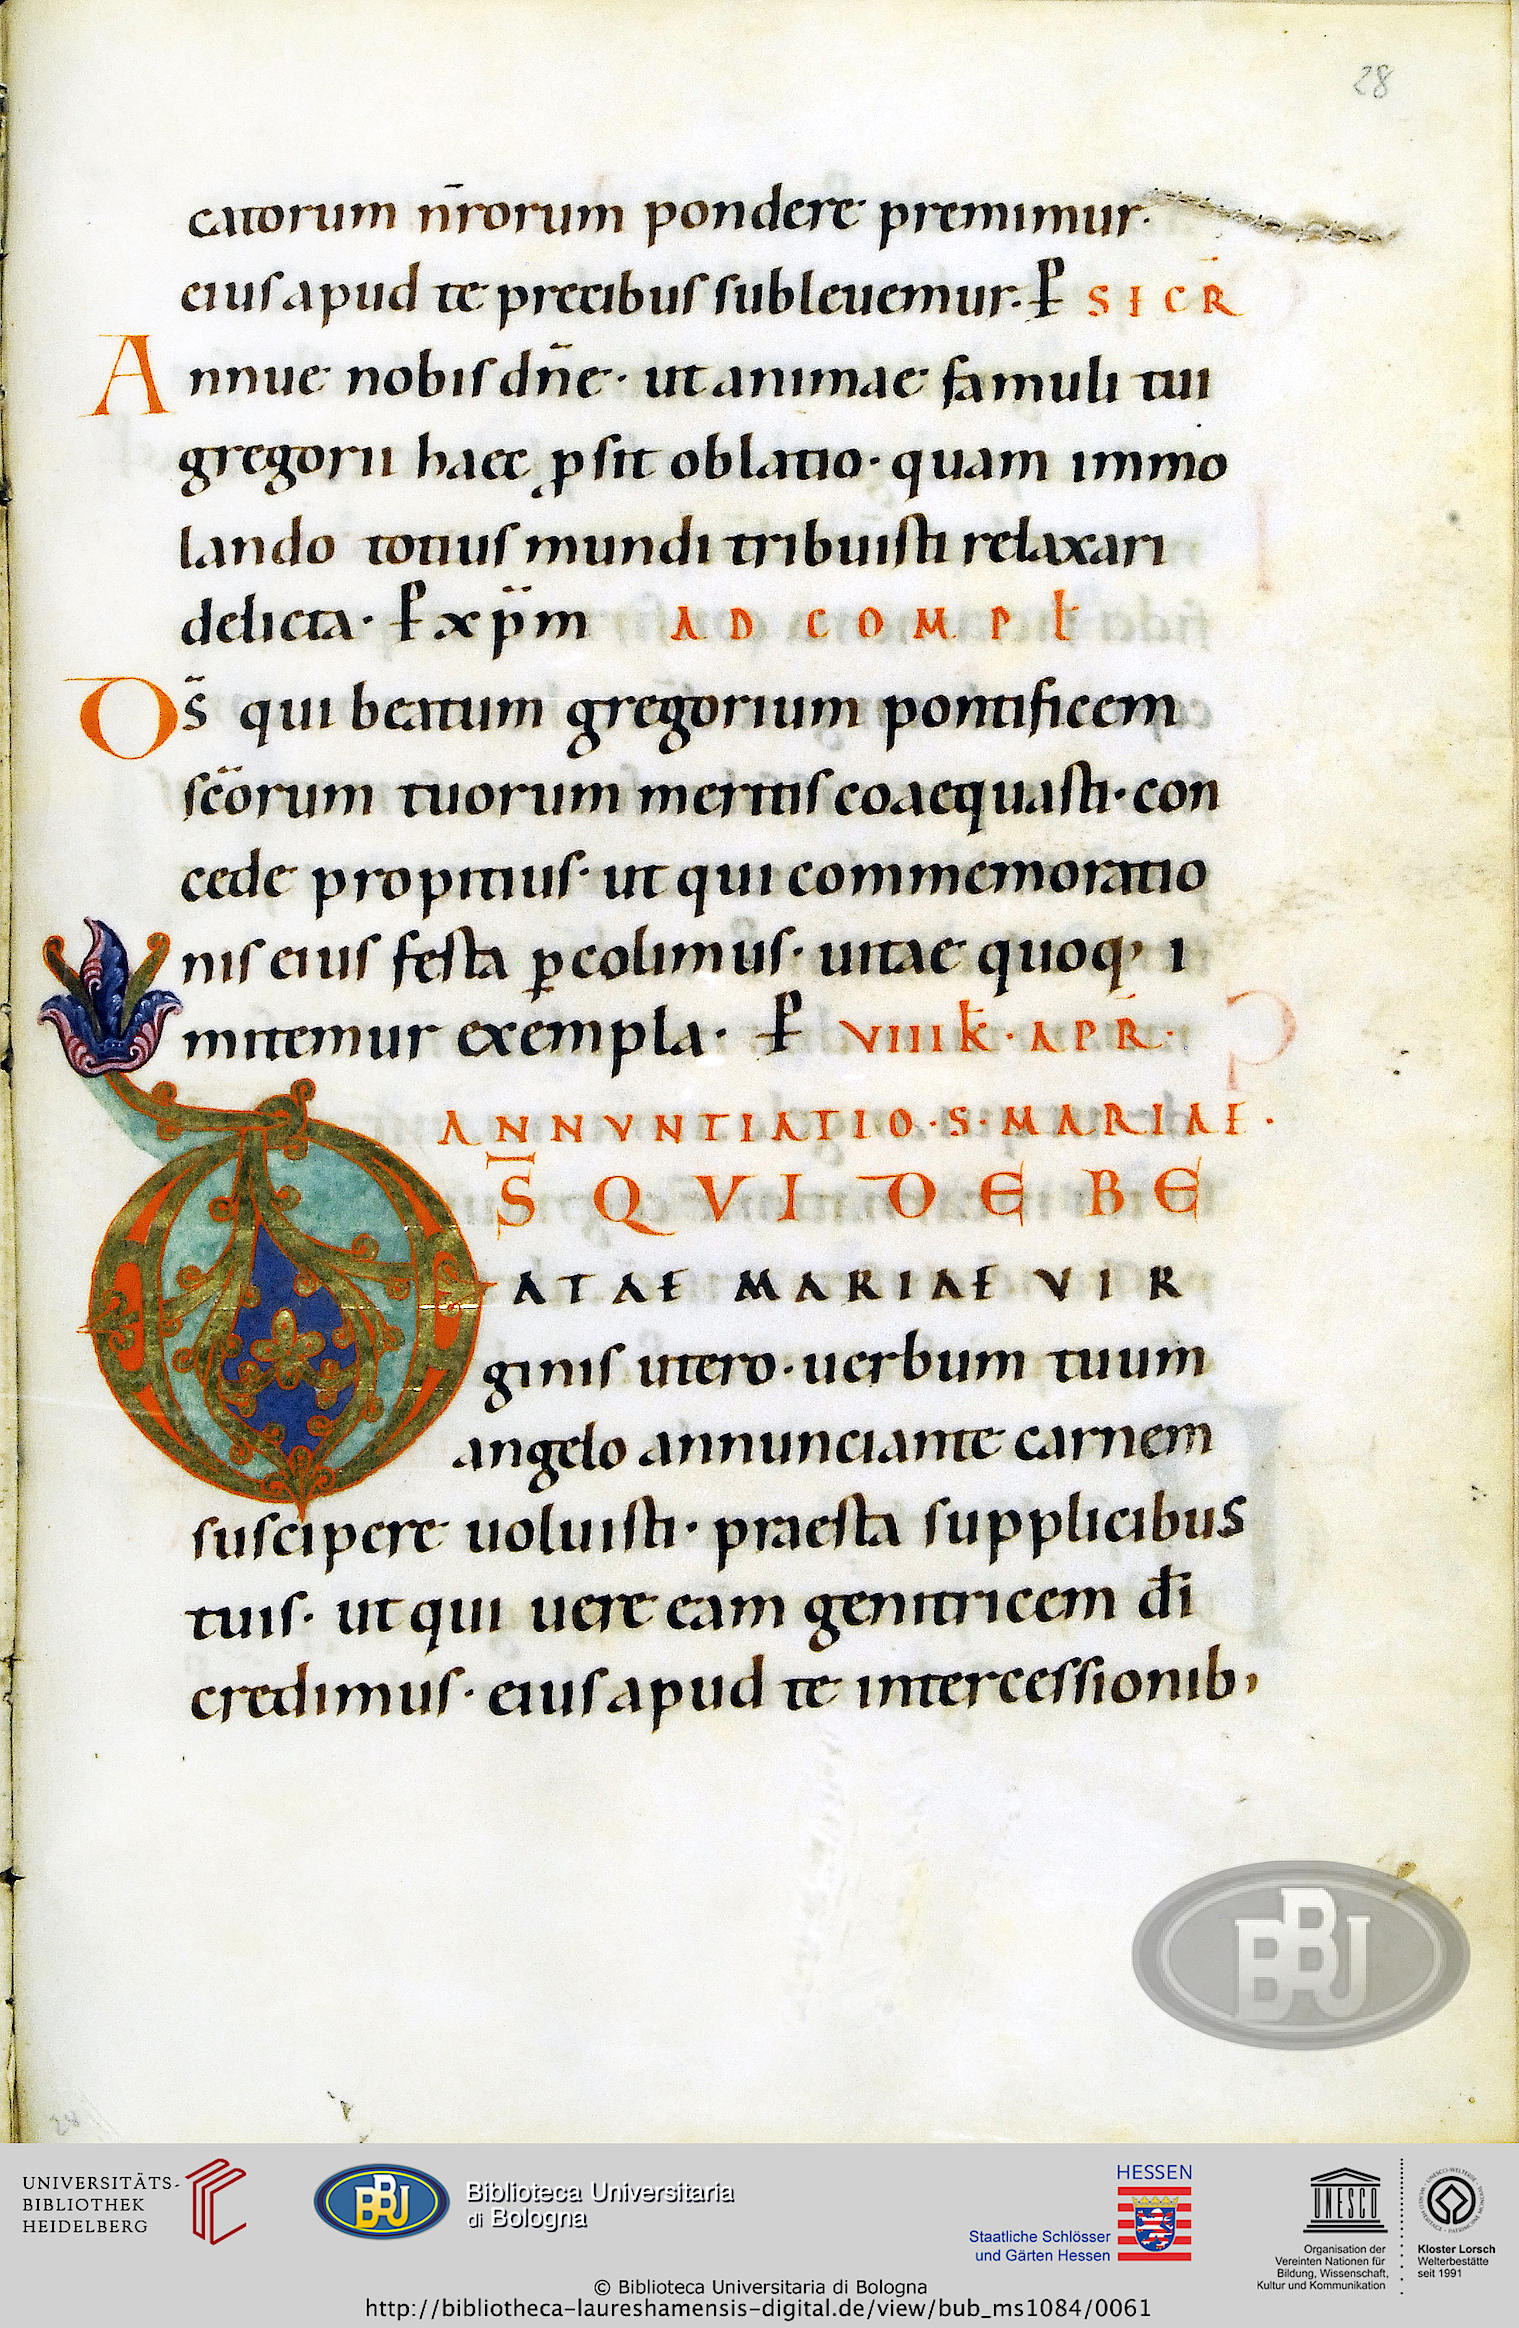 28
catorum nr̄orum pondere premimur·
eius apud te precibus subleuemur· P̵ SI CR̄
Annue nobis dn̄e· ut animae famuli tui
gregorii haec ꝓsit oblatio· quam immo
lando totius mundi tribuisti relaxari
delicta· P̵ xp̄m AD COMPL
Ds̄ qui beatum gregorium pontificem
sc̄orum tuorum meritis coaequasti· con
cede propitius· ut qui commemoratio
nis eius festa ꝑcolimus· uitae quoq; i
mitemur exempla· P̵ VIIII K̄· APR̄·
ANNVNTIATIO· S· MARIAE·
DS̄ QVI DE BE
ATAE MARIAE VIR
ginis utero· uerbum tuum
angelo annunciante carnem
suscipere uoluisti· praesta supplicibus
tuis· ut qui uere eam genitricem dī
credimus· eius apud te intercessionib;
BBU
28
UNIVERSITÄTS-
BIBLIOTHEK
HEIDELBERG
BBU
Biblioteca Universitaria
di Bologna
HESSEN
Staatliche Schlösser
und Gärten Hessen
UNESCO
Organisation der
Vereinten Nationen für
Bildung, Wissenschaft,
Kultur und Kommunikation
Kloster Lorsch
Welterbestätte
seit 1991
© Biblioteca Universitaria di Bologna
http://bibliotheca-laureshamensis-digital.de/view/bub_ms1084/0061